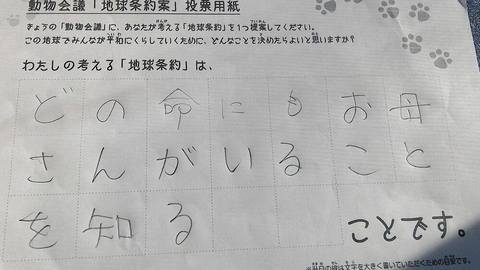 動物会議「地球条約案」投票用紙
きょうの「動物会議」に、あなたが考える「地球条約」を1つ提案してください。
この地球でみんなが平和にくらしていくために、どんなことを決めたらよいと思いますか?
わたしの考える「地球条約」は、
どの命にもお母
さんがいること
を知る
ことです。
※点線は文字を大きく書いていただくための目安です。